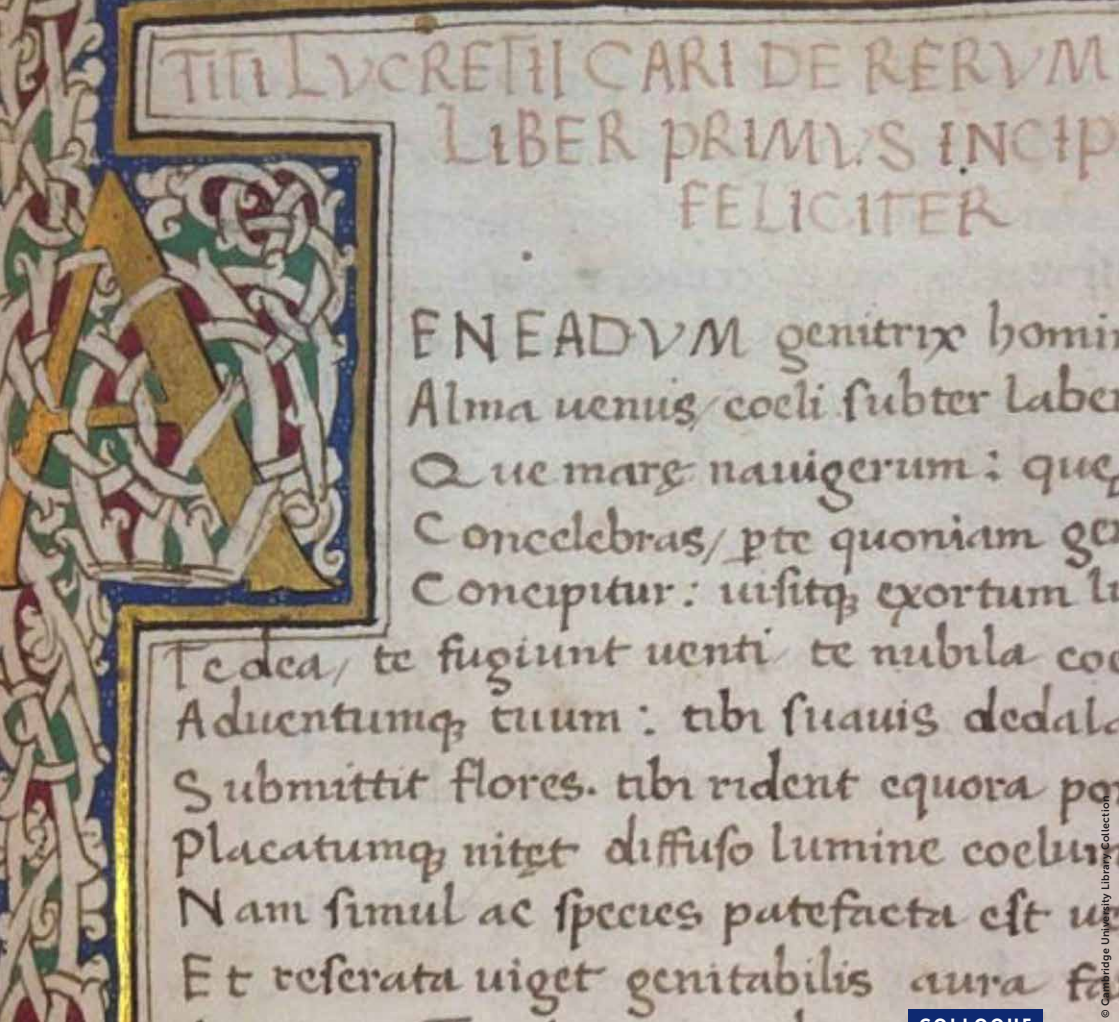 TITI LVCRETII CARI DE RERVM
LIBER PRIMVS INCIP
FELICITER
AENEADVM genitrix homi
Alma uenus/ coeli ſubter labe
Que marę nauigerum : que
Concelebras/ ꝑte quoniam ge
Concipitur : uiſitqꝫ exortum
Te dea/ te fugiunt uenti/ te nubila coe
Aduentumqꝫ tuum : tibi ſuauis dedal
Submittit flores. tibi rident equora po
Placatumqꝫ nitęt diffuſo lumine coelu
Nam ſimul ac ſpecies patefacta eſt u
Et reſerata uiget genitabilis aura fa
© Cambridge University Library Collection
COLLOQUE